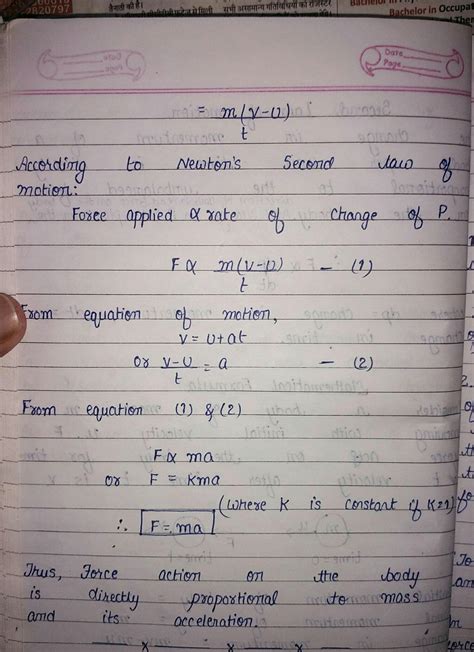 2820797
Bachelor in Occupa
Date
Page
= m(v-u)
t
According to Newton's Second Law of
motion:
Force applied α rate of change of P.
F α m(v-u) — (1)
t
From equation of motion,
v = u+at
Or v-u = a — (2)
t
From equation (1) & (2)
F α ma
or F = kma
(where K is constant if K=1)
∴ F = ma
Thus, Force action on the body
is directly proportional to mass
and its acceleration.
x x x